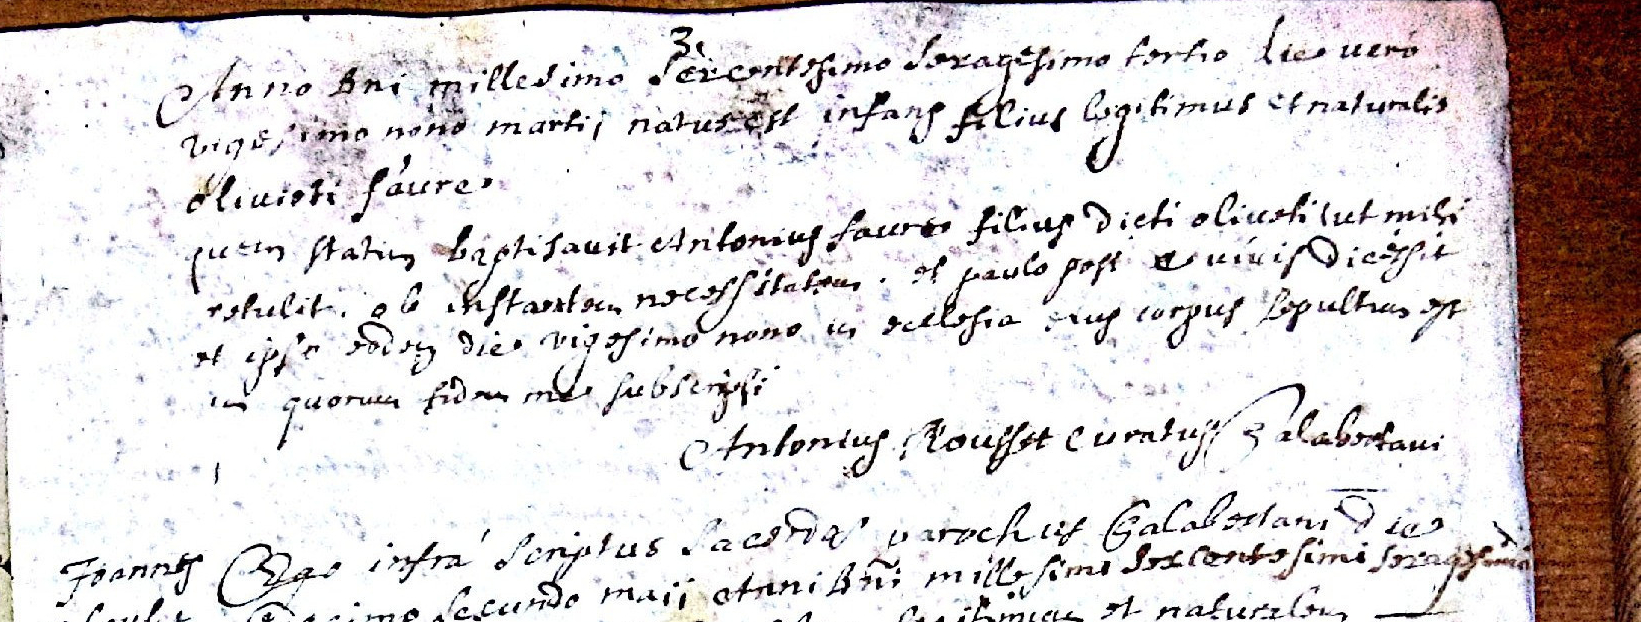 3.
Anno Dni millesimo sexcentesimo sexagesimo tertio die vero
vigesimo nono martij natus est infans filius legitimus et naturalis
oliveti faure
quem statim baptisavit Antonius faure filius dicti oliveti ut mihi
retulit. ob instantem necessitatem. et paulo post e vivis dicessit
et ipso eodem die vigesimo nono in ecclesia eius corpus sepultum est
in quorum fidem me subscripsi
Antonius Rousset Curatus Galabertani
Joannes Ego infrà scriptus sacerdos parochus Galabertani die
decimo secundo maij Anni Dñi millesimi sexcentesimi sexagesimi
legitimum et naturalem